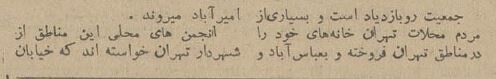 جمعیت روبازدیاد است و بسیاری‌از
مردم محلات تهران خانه‌های خود را
درمناطق تهران فروخته و بعباس‌آباد و
امیرآباد میروند .
انجمن های محلی این مناطق از
شهردار تهران خواسته اند که خیابان